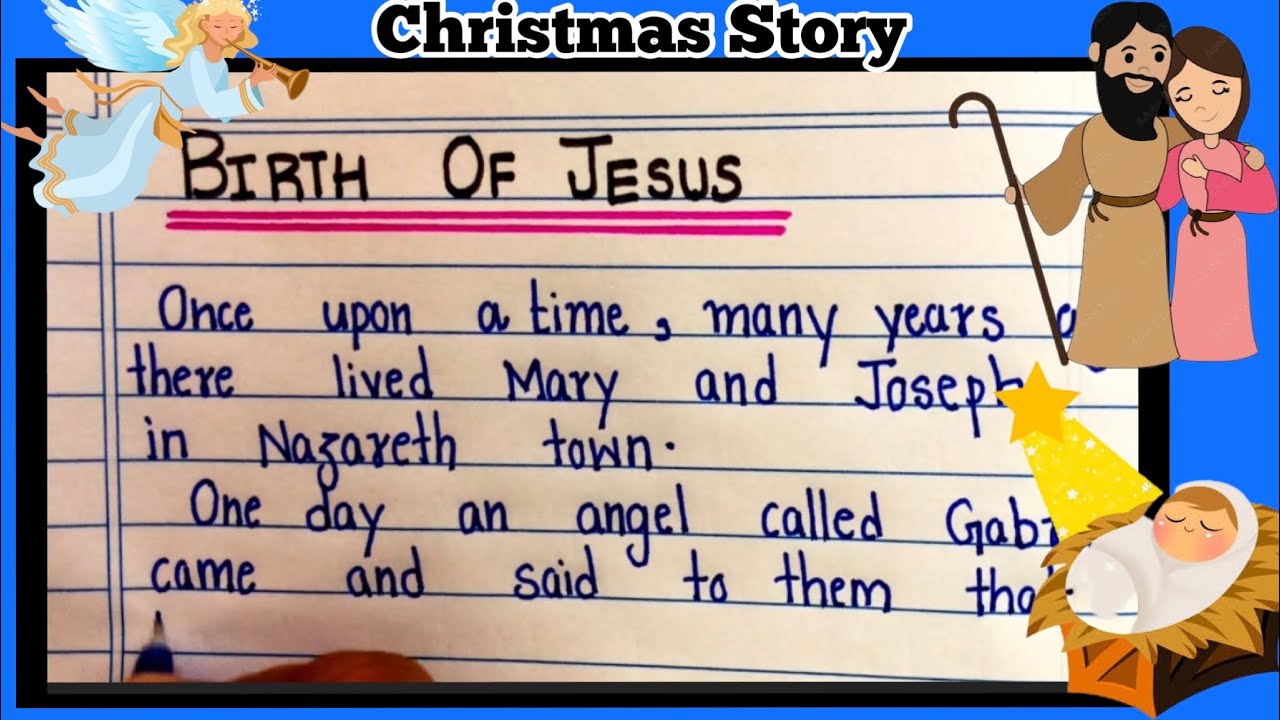 Christmas Story
BIRTH OF JESUS
Once upon a time, many years
there lived Mary and Joseph
in Nazareth town.
One day an angel called
came and said to them